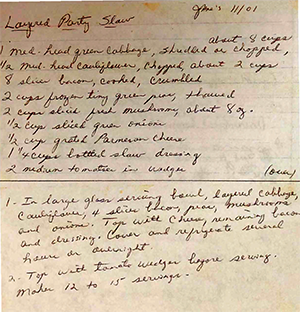 Layered Party Slaw
11/01
about 8 cups
1 med. head green cabbage, shredded or chopped,
1/2 med. head cauliflower, chopped about 2 cups
8 slices bacon, cooked, crumbled
2 cups frozen tiny green peas, thawed
2 cups sliced fresh mushrooms, about 8 oz.
1/2 cup sliced green onion
1/2 cup grated Parmesan Cheese
1 1/4 cups bottled slaw dressing
2 medium tomatoes in wedges
(over)
1. In large glass serving bowl, layered cabbage,
cauliflower, 4 slices bacon, peas, mushrooms
and onions. Top with cheese, remaining bacon
and dressing. Cover and refrigerate several
hours or overnight.
2. Top with tomato wedges before serving.
Makes 12 to 15 servings.